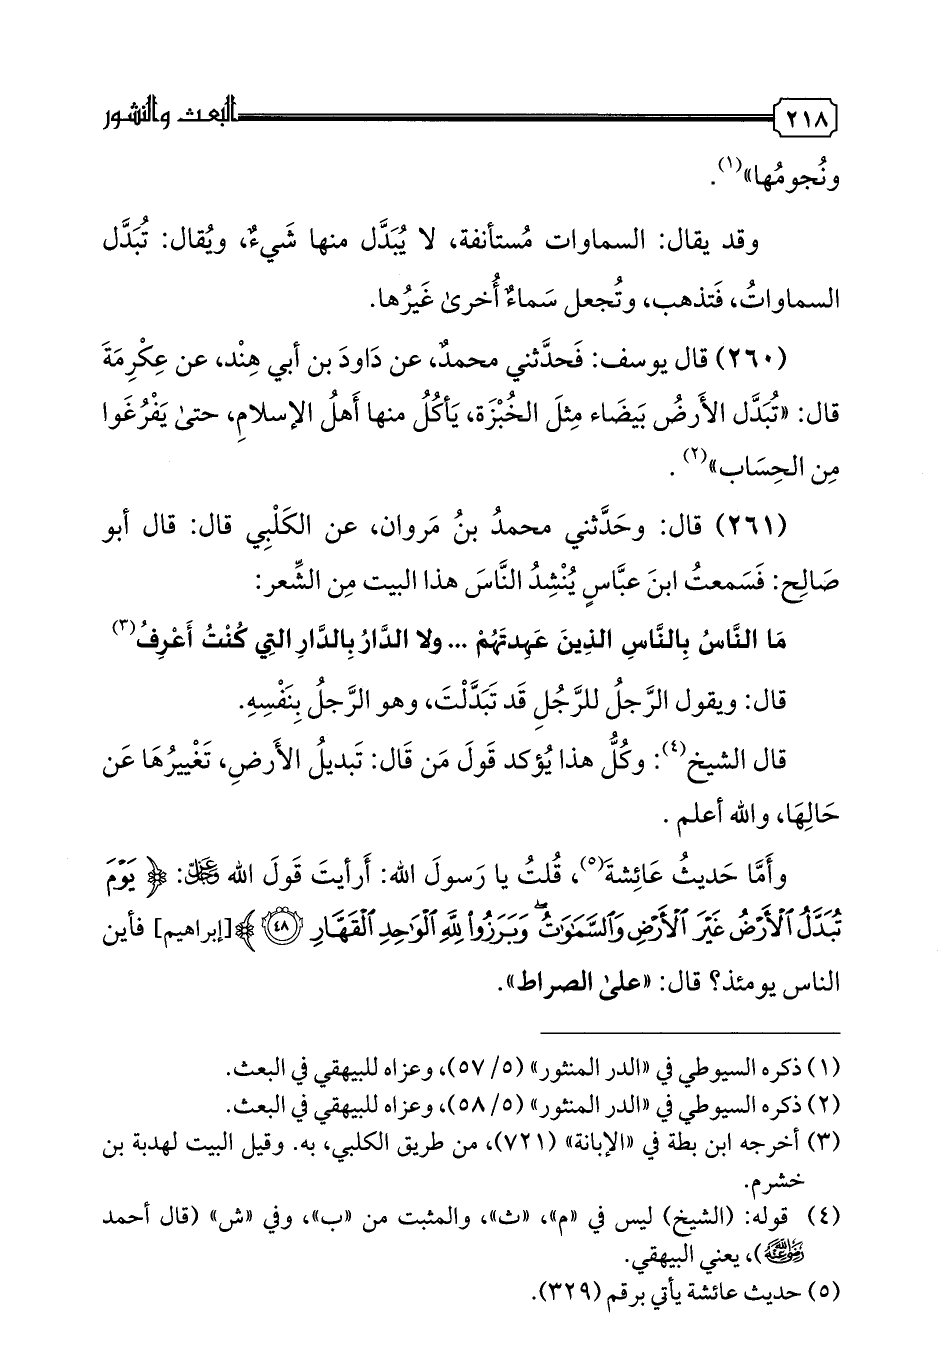 ٢١٨ البعث والنشور
ونُجومُها»(١).
وقد يقال: السماوات مُستأنفة، لا يُبَدَّل منها شَيءٌ، ويُقال: تُبَدَّل
السماواتُ، فَتذهب، وتُجعل سَماءٌ أُخرىٰ غَيرُها.
(٢٦٠) قال يوسف: فَحدَّثني محمدٌ، عن دَاودَ بن أبي هِنْد، عن عِكْرِمَةَ
قال: «تُبَدَّل الأَرضُ بَيضَاء مِثلَ الخُبْزَة، يَأكُلُ منها أَهلُ الإسلامِ، حتىٰ يَفْرُغَوا
مِن الحِسَاب»(٢) .
(٢٦١) قال: وحَدَّثني محمدُ بنُ مَروان، عن الكَلْبِي قال: قال أبو
صَالِح: فَسَمعتُ ابنَ عبَّاسٍ يُنْشِدُ النَّاسَ هذا البيت مِن الشِّعر:
مَا النَّاسُ بِالنَّاسِ الذِينَ عَهِدتَهُمْ ... ولا الدَّارُ بِالدَّارِ التِي كُنْتُ أَعْرِفُ(٣)
قال: ويقول الرَّجلُ للرَّجُلِ قَد تَبَدَّلْتَ، وهو الرَّجلُ بِنَفْسِهِ.
قال الشيخ(٤): وكُلُّ هذا يُؤكد قَولَ مَن قَال: تَبديلُ الأَرضِ، تَغْييرُهَا عَن
حَالِهَا، والله أعلم .
وأَمَّا حَديثُ عَائِشةَ(٥)، قُلتُ يا رَسولَ الله: أَرأيتَ قَولَ الله ﷿: ﴿يَوْمَ
تُبَدَّلُ ٱلْأَرْضُ غَيْرَ ٱلْأَرْضِ وَٱلسَّمَٰوَٰتُۖ وَبَرَزُوا۟ لِلَّهِ ٱلْوَٰحِدِ ٱلْقَهَّارِ ۝٤٨﴾[إبراهيم] فأين
الناس يومئذ؟ قال: «علىٰ الصراط».
(١) ذكره السيوطي في «الدر المنثور» (٥/ ٥٧)، وعزاه للبيهقي في البعث.
(٢) ذكره السيوطي في «الدر المنثور» (٥/ ٥٨)، وعزاه للبيهقي في البعث.
(٣) أخرجه ابن بطة في «الإبانة» (٧٢١)، من طريق الكلبي، به. وقيل البيت لهدبة بن
خشرم.
(٤) قوله: (الشيخ) ليس في «م»، «ث»، والمثبت من «ب»، وفي «ش» (قال أحمد
رضي الله عنه)، يعني البيهقي.
(٥) حديث عائشة يأتي برقم (٣٢٩).